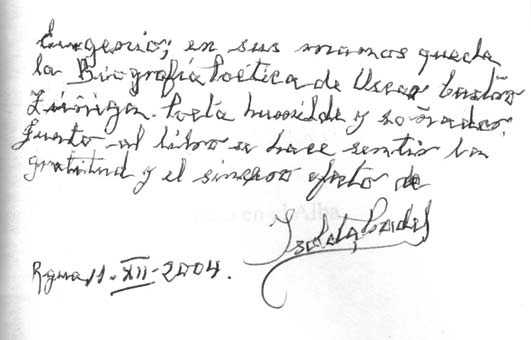 Eugenio; en sus manos queda
la Biografía Poética de Oscar Castro
Zúñiga. Poeta humilde y soñador.
Junto al libro se hace sentir la
gratitud y el sincero afecto de
Isolda Pradel
Rgua 11-XII-2004.